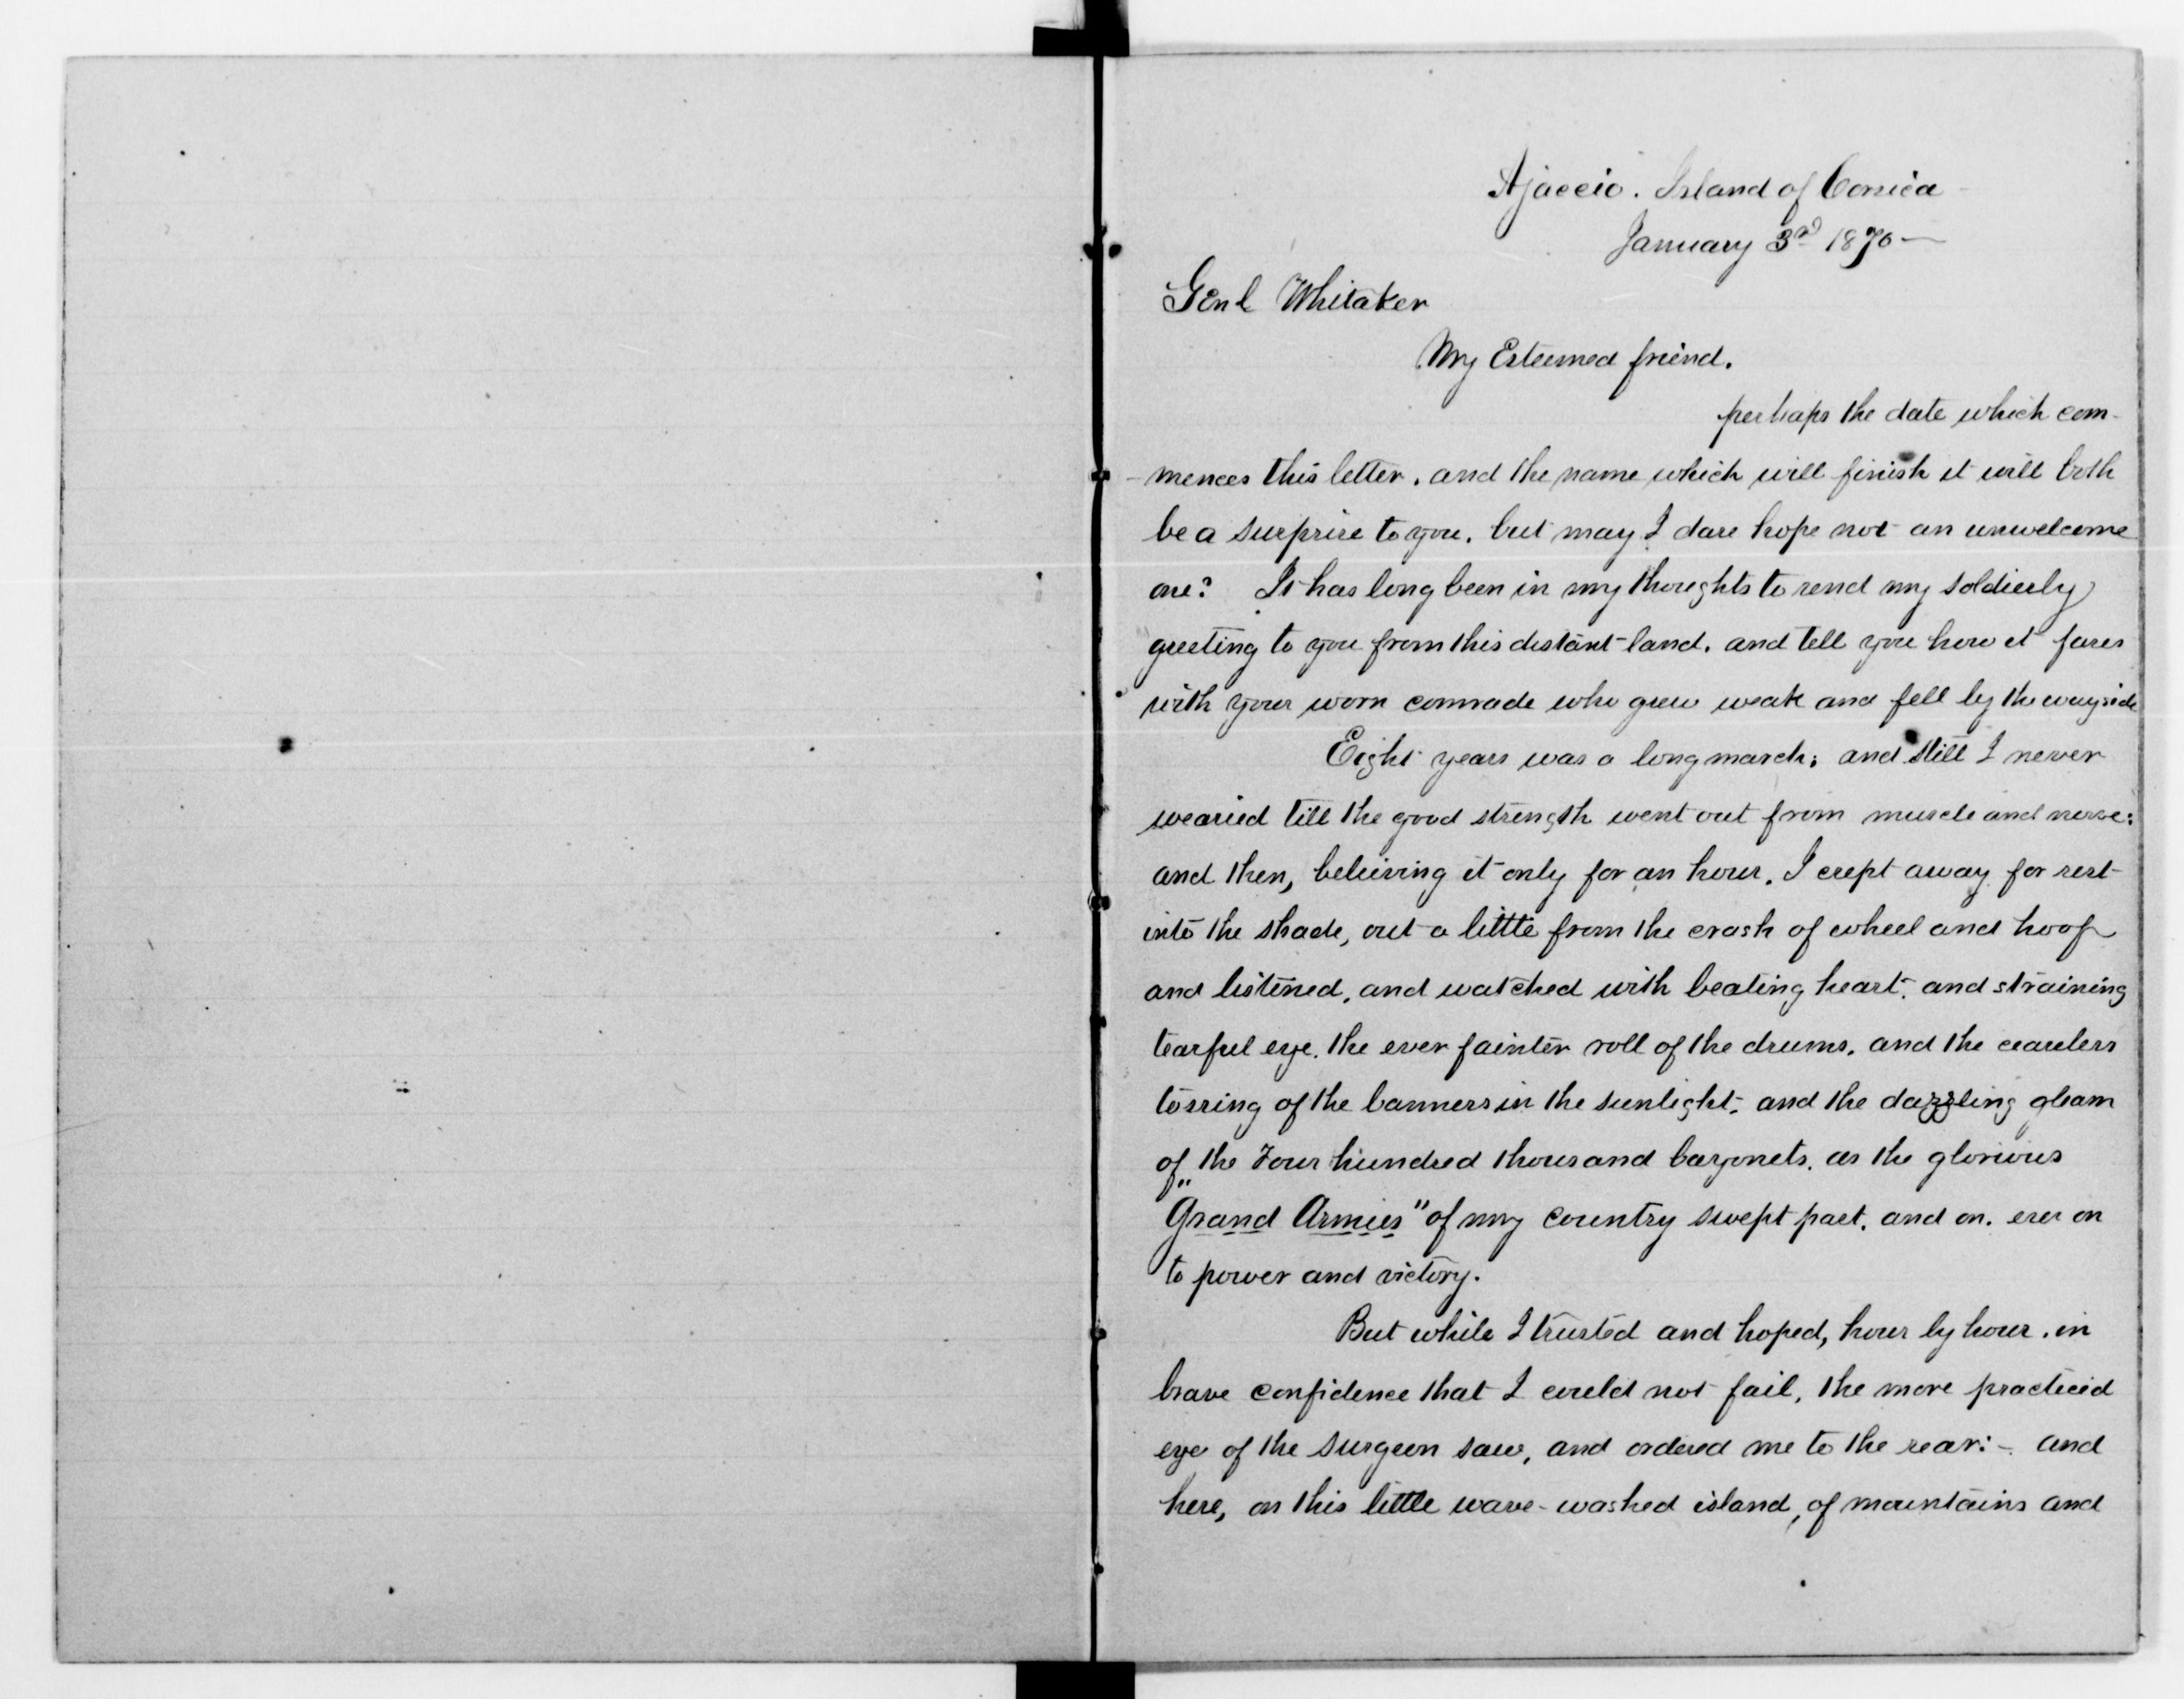 Ajaccio. Island of Corsica
January 3rd 1870—
Genl Whitaker
My Esteemed friend.
perhaps the date which com-
-mences this letter, and the name which will finish it will both
be a surprise to you, but may I dare hope not an unwelcome
one? It has long been in my thoughts to send my soldierly
greeting to you from this distant land, and tell you how it fares
with your worn comrade who grew weak and fell by the wayside
Eight years was a long march; and still I never
wearied till the good strength went out from muscle and nerve;
and then, believing it only for an hour, I crept away for rest
into the shade, out a little from the crash of wheel and hoof
and listened, and watched with beating heart, and straining
tearful eye, the ever fainter roll of the drums, and the
tossing of the banners in the sunlight, and the dazzling gleam
of the Four hundred thousand bayonets, as the glorious
"Grand Armies" of my country swept past, and on, ever on
to power and victory.
But while I trusted and hoped, hour by hour, in
brave confidence that I could not fail, the more practiced
eye of the surgeon saw, and ordered me to the rear:- and
here, on this little wave-washed island, of mountains and